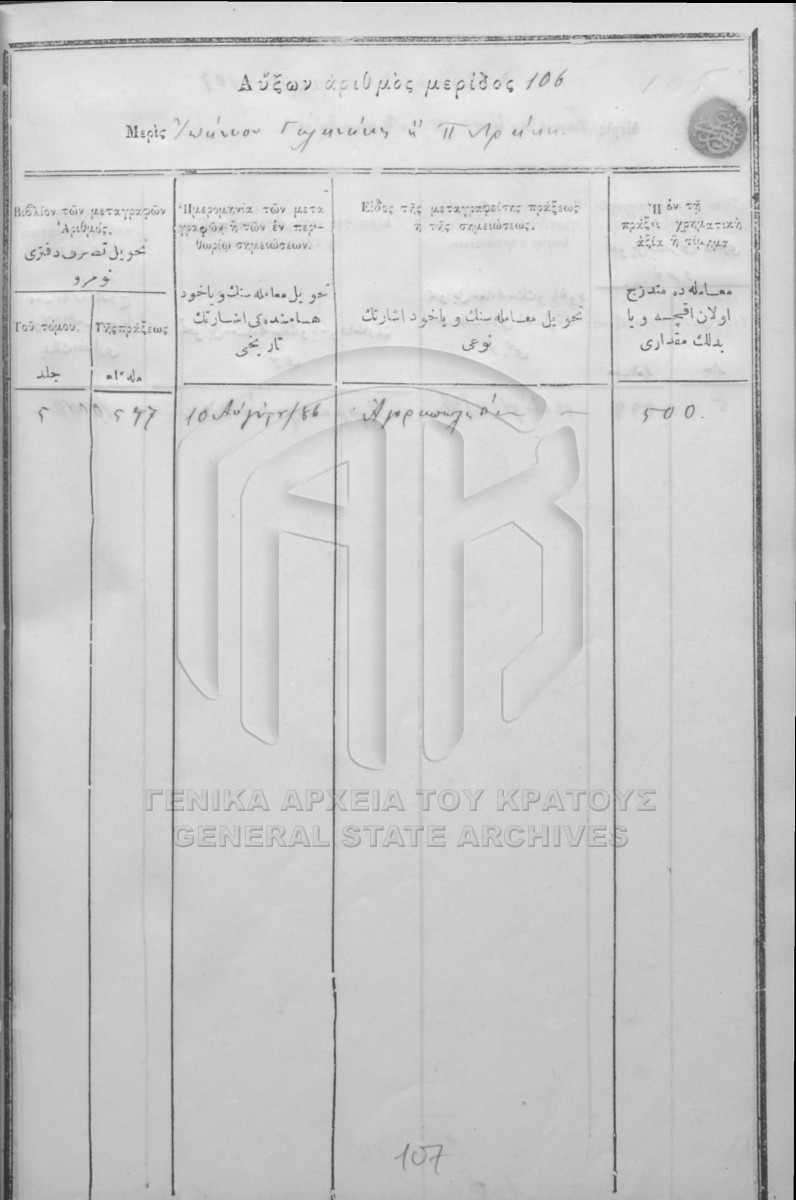 Αὔξων ἀριθμὸς μερίδος 106
Μερὶς Ἰωάννου ἢ
Βιβλίον τῶν μεταγραφῶν
Ἀριθμός.
تحويل تصرف دفترى
نومرو
Τοῦ τόμου.
جلد
Τῆς πράξεως
معامله
Ἡμερομηνία τῶν μετα
γραφῶν ἢ τῶν ἐν περι-
θωρίῳ σημειώσεων.
تحويل معامله سنك وياخود
هامشده كى اشارتك
تاريخى
Εἶδος τῆς μεταγραφείσης πράξεως
ἢ τῆς σημειώσεως.
تحويل معامله سنك وياخود اشارتك
نوعى
Ἡ ἐν τῇ
πράξει χρηματικὴ
ἀξία ἢ τίμημα
معامله ده مندرج
اولان اقچه ويا
بدلك مقدارى
5 547 10 Αὐγ/του/86 Ἀγοραπωλησία — 500.
ΓΕΝΙΚΑ ΑΡΧΕΙΑ ΤΟΥ ΚΡΑΤΟΥΣ
GENERAL STATE ARCHIVES
107